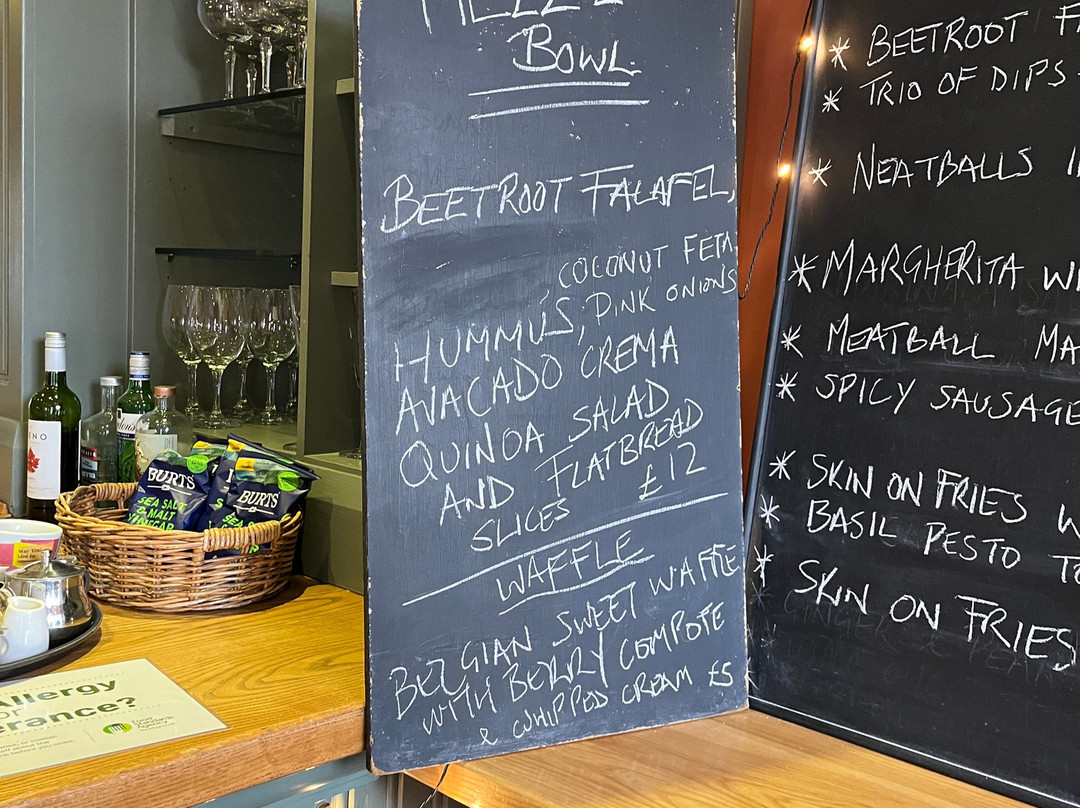 BOWL
BEETROOT FALAFEL,
COCONUT FETA,
HUMMUS, PINK ONIONS
AVACADO CREMA
QUINOA SALAD
AND FLATBREAD
SLICES £12
WAFFLE
BELGIAN SWEET WAFFLE
WITH BERRY COMPOTE
& WHIPPED CREAM £5
* BEETROOT
* TRIO OF DIPS
* NEATBALLS
* MARGHERITA
* MEATBALL
* SPICY SAUSAGE
* SKIN ON FRIES
* BASIL PESTO
* SKIN ON FRIES
BURTS
SEA SALT
& MALT
VINEGAR
BURTS
SEA
Allergy
Food
Standards
Agency